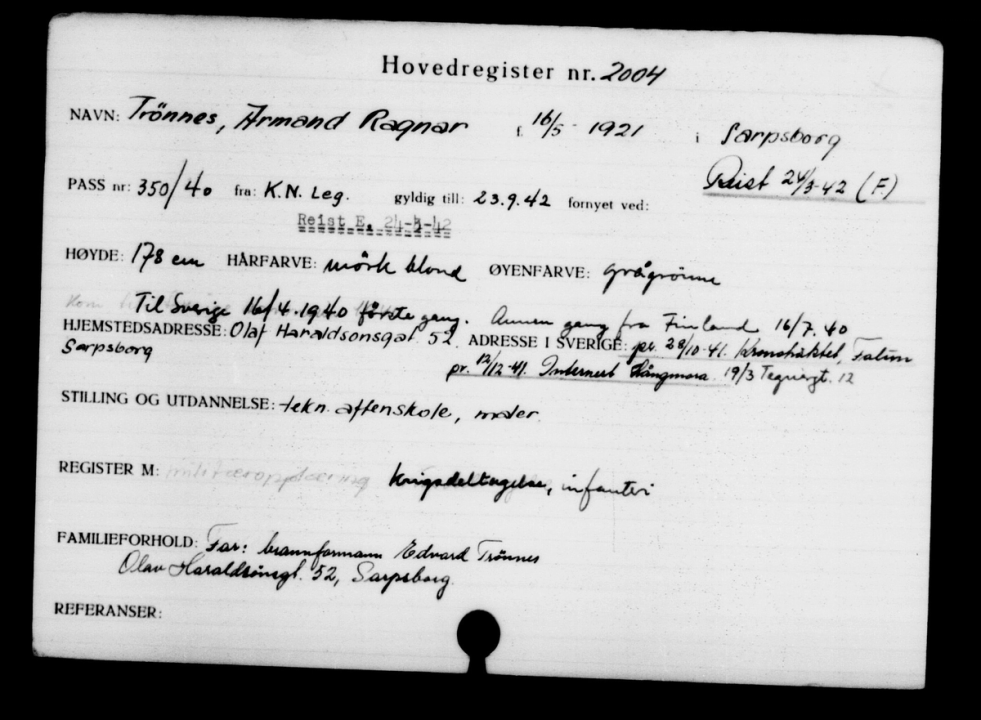 Hovedregister nr. 2004
NAVN: Trönnes, Armand Ragnar f. 16/5 - 1921 i Sarpsborg
PASS nr: 350/40 fra: K.N. Leg. gyldig till: 23.9.42 fornyet ved: Reist 24/3-42 (F.)
Reist E. 24-3-42
HØYDE: 178 cm HÅRFARVE: mörk blond ØYENFARVE: grågrönne
Til Sverige 16/4.1940 första gang. Annen gang fra Finland 16/7.40
HJEMSTEDSADRESSE: Olaf Haraldsonsgat 52. ADRESSE I SVERIGE: pr. 28/10-41. Kronohäktet, Falun
Sarpsborg pr. 12/12-41. Internert Långmora. 19/3 Tegnérgt. 12
STILLING OG UTDANNELSE: tekn. aftenskole, maler.
REGISTER M: militæropplæring krigsdeltagelse, infanteri
FAMILIEFORHOLD: Far: brannformann Edvard Trönnes
Olav Haraldsönsgt. 52, Sarpsborg.
REFERANSER: